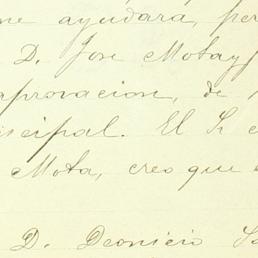 me ayudara, per
D. Jose Mota y
aprovacion, de
cipal. El Sr
Mota, creo que
D. Deonicio